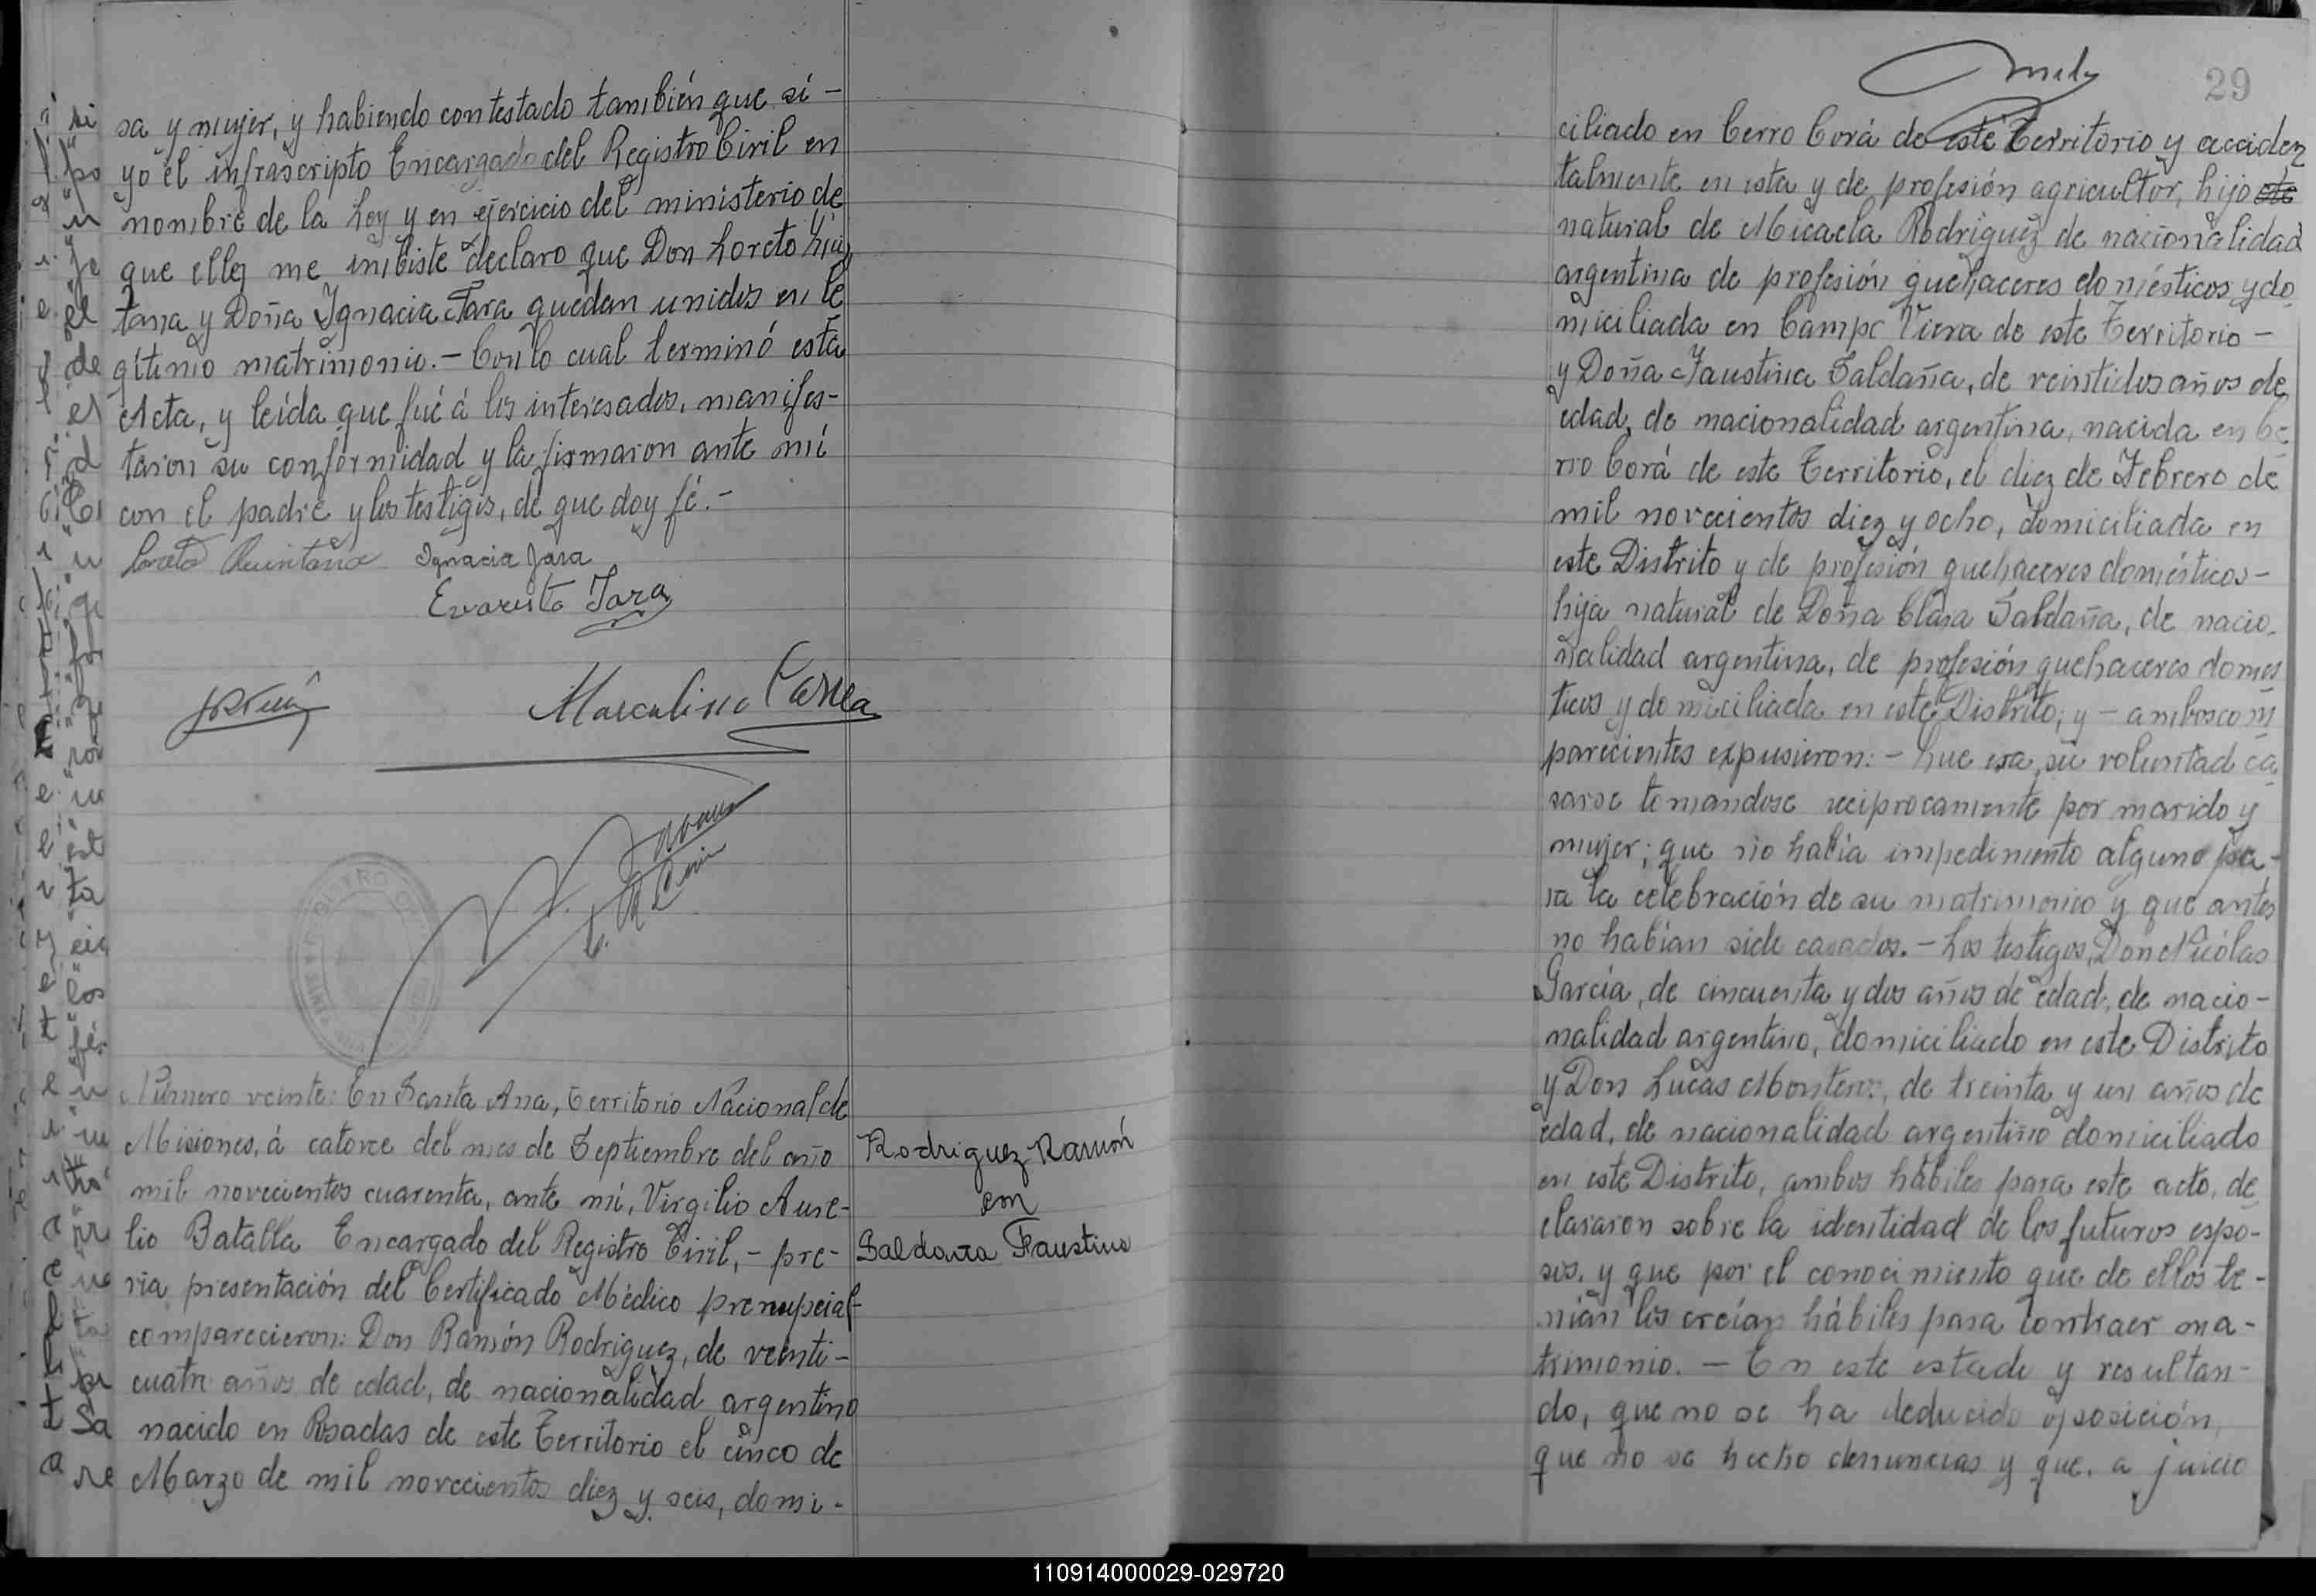 sa y mujer, y habiendo contestado también que sí -
yo el infrascripto Encargado del Registro Civil en
nombre de la Ley y en ejercicio del ministerio de
que ella me inbiste declaro que Don Loreto Quin
tana y Doña Ignacia Jara quedan unidos en le
gítimo matrimonio. - Con lo cual terminó esta
Acta, y leída que fué á los interesados, manifes-
taron su conformidad y la firmaron ante mí
con el padre y los testigos, de que doy fé. -
Loreto Quintana Ignacia Jara
Evaristo Jara
Marculino Correa
Número veinte: En Santa Ana, Territorio Nacional de
Misiones, á catorce del mes de Septiembre del año
mil novecientos cuarenta, ante mí, Virgilio Aure-
lio Batalla Encargado del Registro Civil, - pre-
via presentación del Certificado Médico prenupcial-
comparecieron: Don Ramón Rodriguez, de veinti-
cuatro años de edad, de nacionalidad argentino
nacido en Posadas de este Territorio el cinco de
Marzo de mil novecientos diez y seis, domi-
Rodriguez Ramón
con
Saldaña Faustina
29
ciliado en Cerro Corá de este Territorio y acciden
talmente en esta y de profesión agricultor, hijo
natural de Micaela Rodriguez de nacionalidad
argentina de profesión quehaceres domésticos y do
miciliada en Campo Viera de este Territorio -
y Doña Faustina Saldaña, de veintidos años de
edad, de nacionalidad argentina, nacida en Ce
rro Corá de este Territorio, el diez de Febrero de
mil novecientos diez y ocho, domiciliada en
este Distrito y de profesión quehaceres domésticos -
hija natural de Doña Clara Saldaña, de nacio-
nalidad argentina, de profesión quehaceres domes
ticos y domiciliada en este Distrito; y - ambos com
parecientes expusieron: - Que era su voluntad ca
sarse tomandose reciprocamente por marido y
mujer; que no habia impedimento alguno pa-
ra la celebración de su matrimonio y que antes
no habían sido casados. - Los testigos, Don Nicólas
García, de cincuenta y dos años de edad, de nacio-
nalidad argentino, domiciliado en este Distrito
y Don Lucas Montero, de treinta y un años de
edad, de nacionalidad argentino domiciliado
en este Distrito, ambos hábiles para este acto, de
clararon sobre la identidad de los futuros espo-
sos, y que por el conocimiento que de ellos te-
nían los creían hábiles para contraer ma-
trimonio. - En este estado y resultan-
do, que no se ha deducido oposición,
que no se hecho denuncias y que, a juicio
110914000029-029720